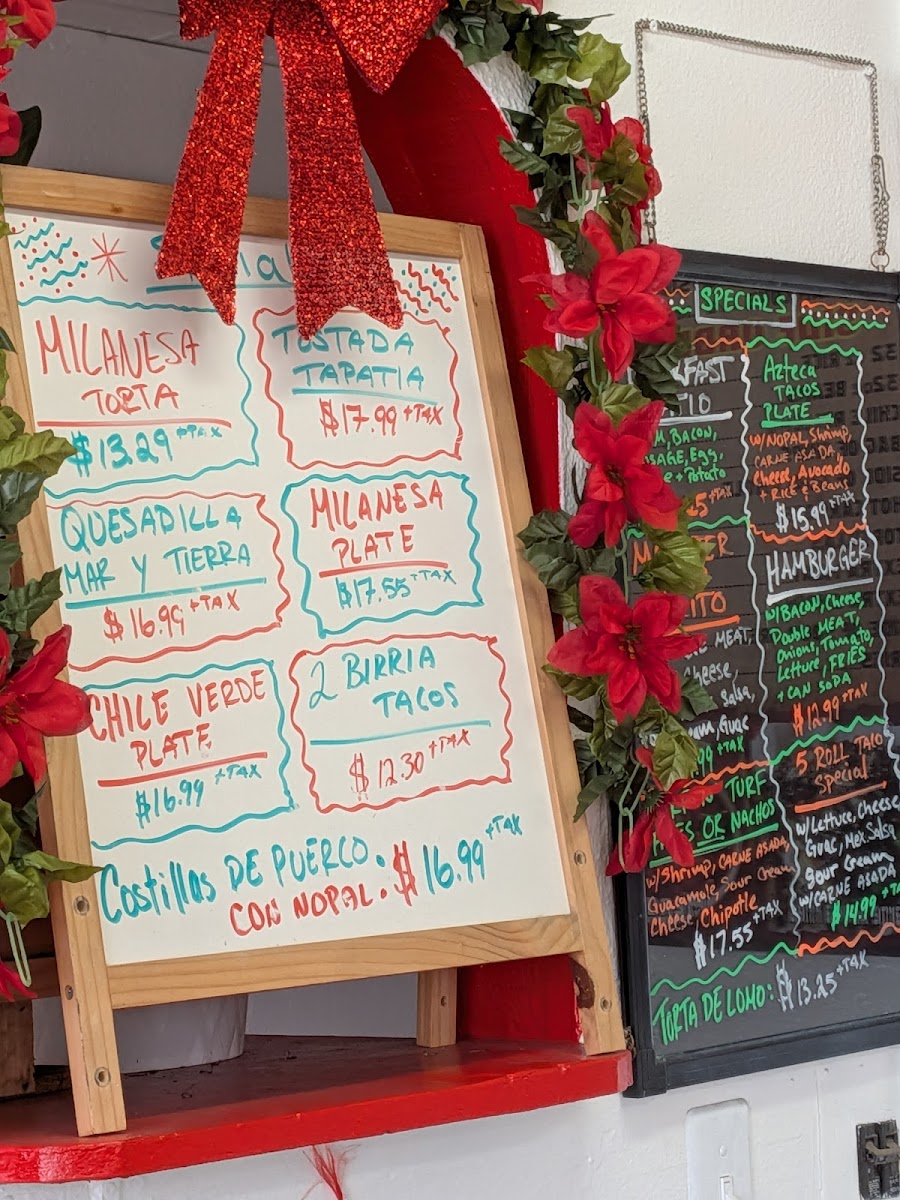 MILANESA
TORTA
$13.29 +TAX
TOSTADA
TAPATIA
$17.99 +TAX
QUESADILLA
MAR Y TIERRA
$16.99 +TAX
MILANESA
PLATE
$17.55 +TAX
CHILE VERDE
PLATE
$16.99 +TAX
2 BIRRIA
TACOS
$12.30 +TAX
Costillas DE PUERCO
CON NOPAL: $16.99 +TAX
SPECIALS
BACON,
Egg,
Potato
+TAX
MEAT,
Cheese,
Salsa,
Guac
+TAX
TURF
OR NACHOS
w/Shrimp, CARNE ASADA,
Guacamole, Sour Cream
Cheese, Chipotle
$17.55 +TAX
Azteca
TACOS
PLATE
w/NOPAL, Shrimp,
CARNE ASADA,
Cheese, Avocado
+ RICE & Beans
$15.99 +TAX
HAMBURGER
w/BACON, Cheese,
Double MEAT,
Onions, Tomato,
Lettuce, FRIES
+ CAN SODA
$12.99 +TAX
5 ROLL TACO
Special
w/Lettuce, Cheese,
Guac, Mex Salsa
Sour Cream
w/CARNE ASADA
$14.99
TORTA DE LOMO: $13.25 +TAX